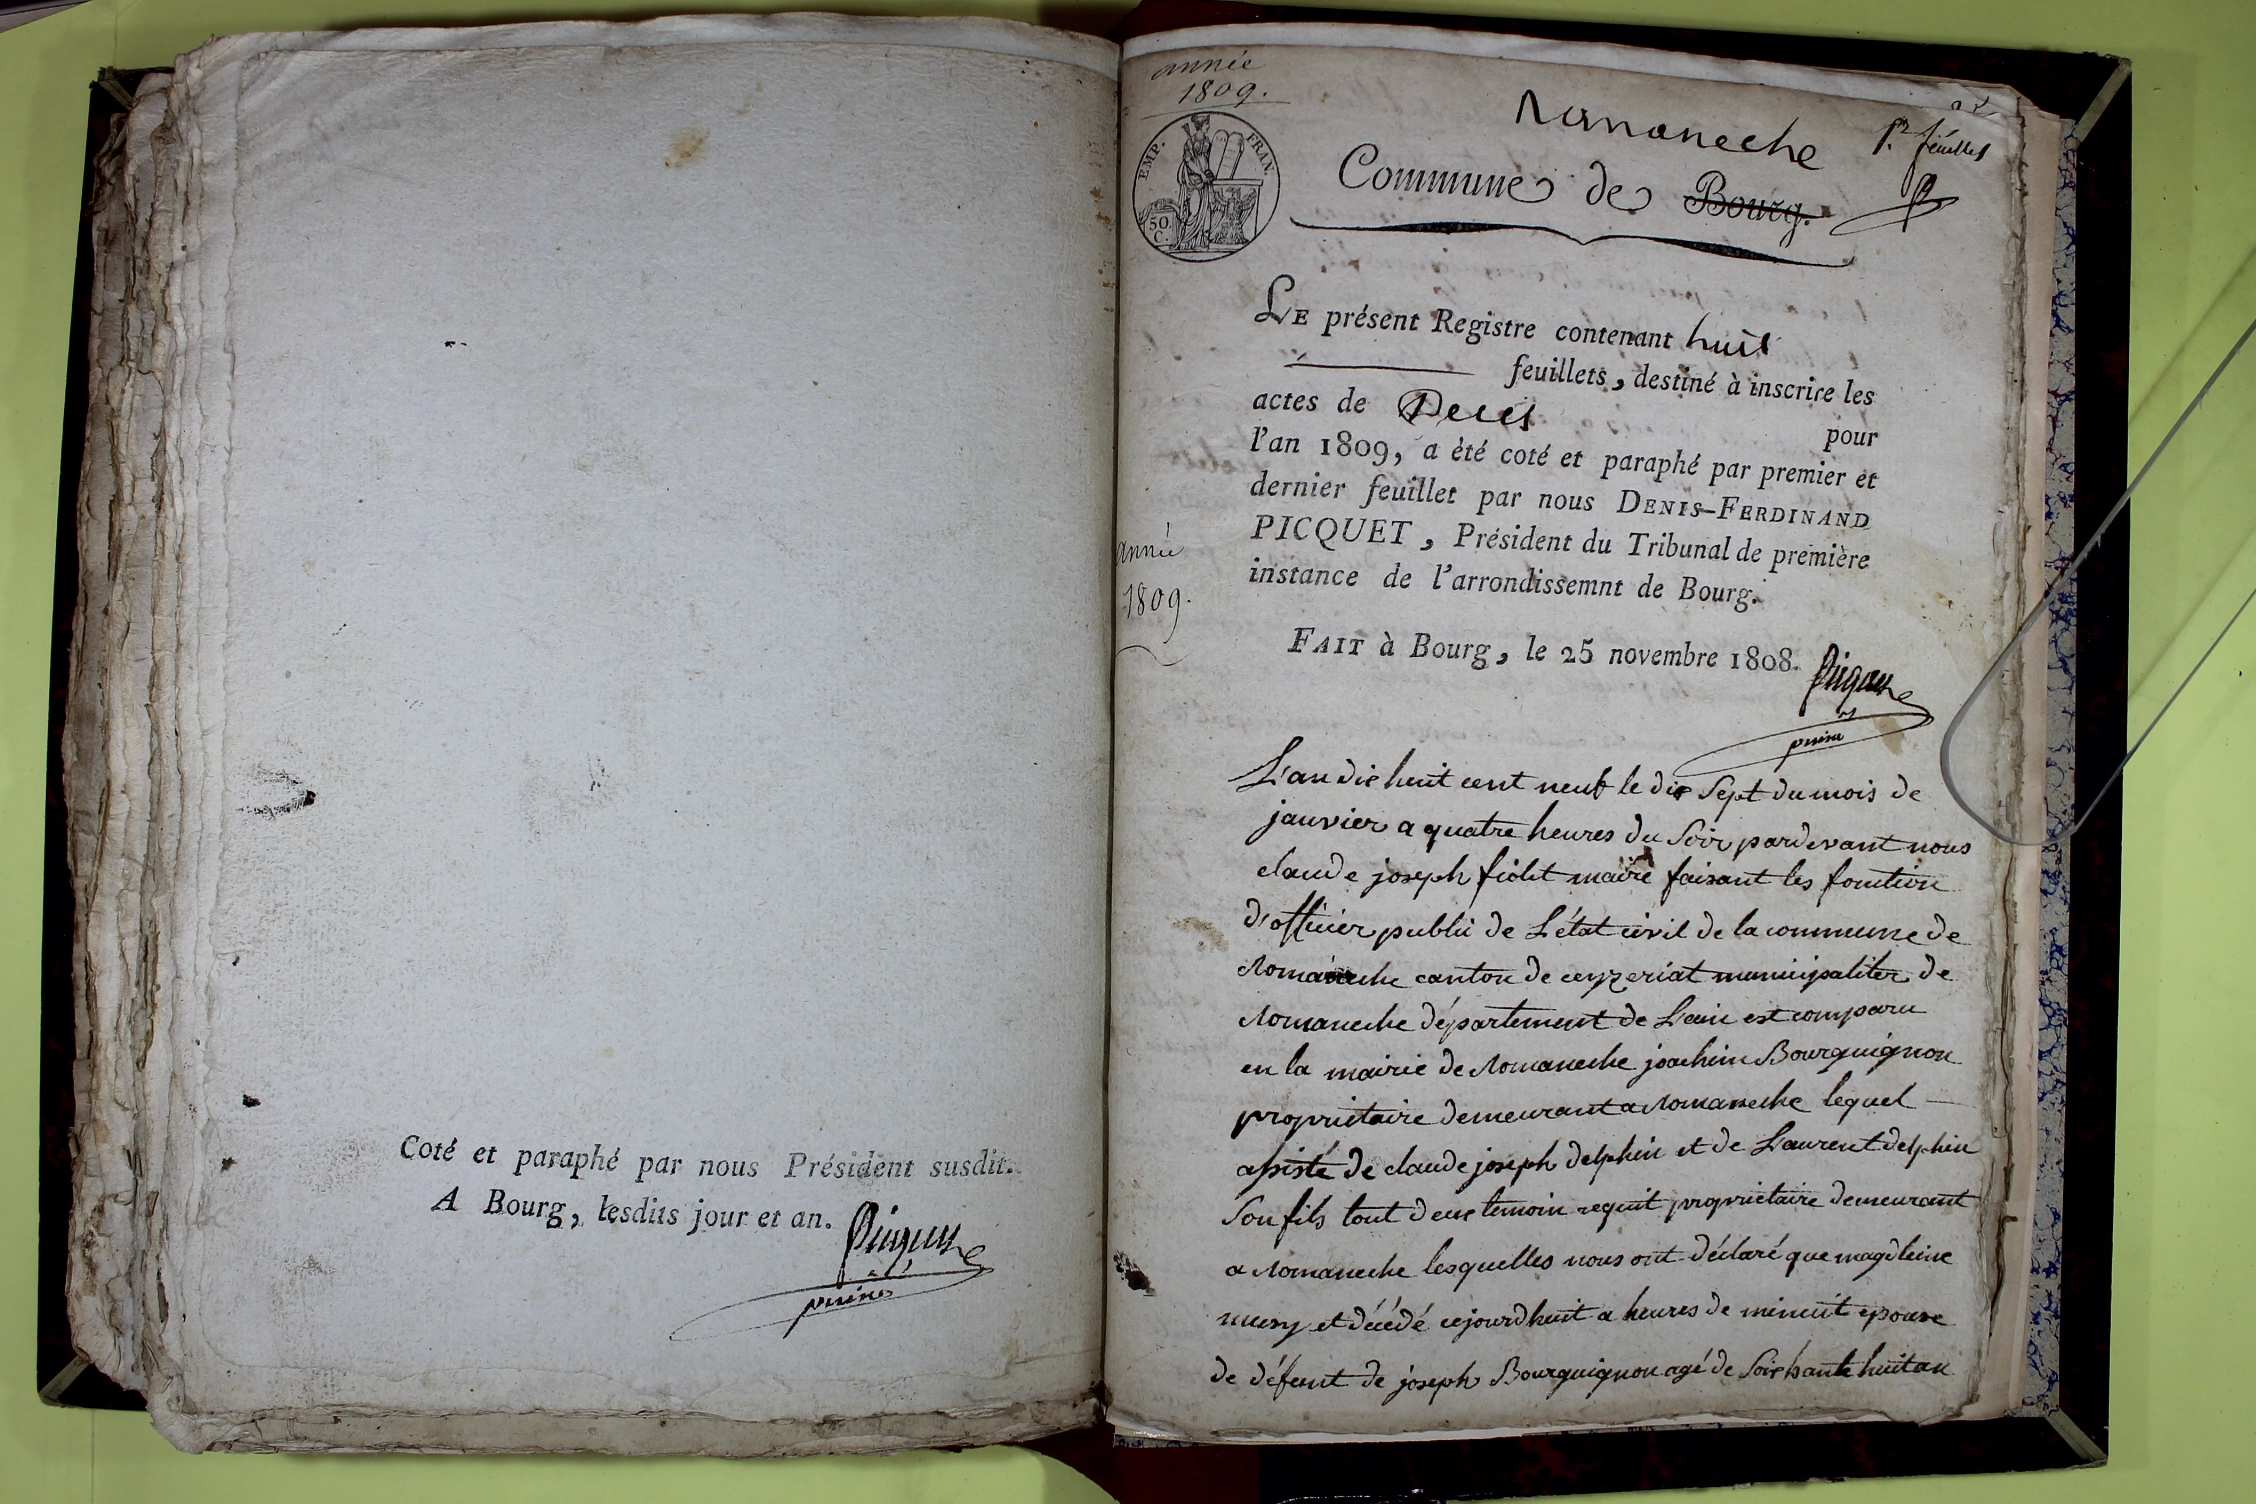 Coté et paraphé par nous Président susdit.
A Bourg, lesdits jour et an.
Picquet
année
1809.
EMP. FRAN.
50 C.
Romaneche
1er feuillet
Commune de Bourg.
LE présent Registre contenant huit
feuillets, destiné à inscrire les
actes de Deces pour
l'an 1809, a été coté et paraphé par premier et
dernier feuillet par nous DENIS-FERDINAND
PICQUET, Président du Tribunal de première
instance de l'arrondissemnt de Bourg.
année
1809.
FAIT à Bourg, le 25 novembre 1808.
Picquet
L'an dix huit cent neuf le dix Sept du mois de
janvier a quatre heures du Soir pardevant nous
claude joseph fiolet maire faisant les fonction
d'officier public de L'état civil de la commune de
Romaneche canton de ceyzeriat municipaliter de
Romaneche département de L'ain est comparu
en la mairie de Romaneche joachim Bourguignon
proprietaire demeurant a Romaneche lequel
assisté de claude joseph delphin et de Laurent delphin
Son fils tout deux temoin requit proprietaire demeurant
a Romaneche lesquelles nous ont déclaré que magdleine
et décédé cejourdhuit a heures de minuit epouse
de défeunt de joseph Bourguignon agé de Soixhante huit an